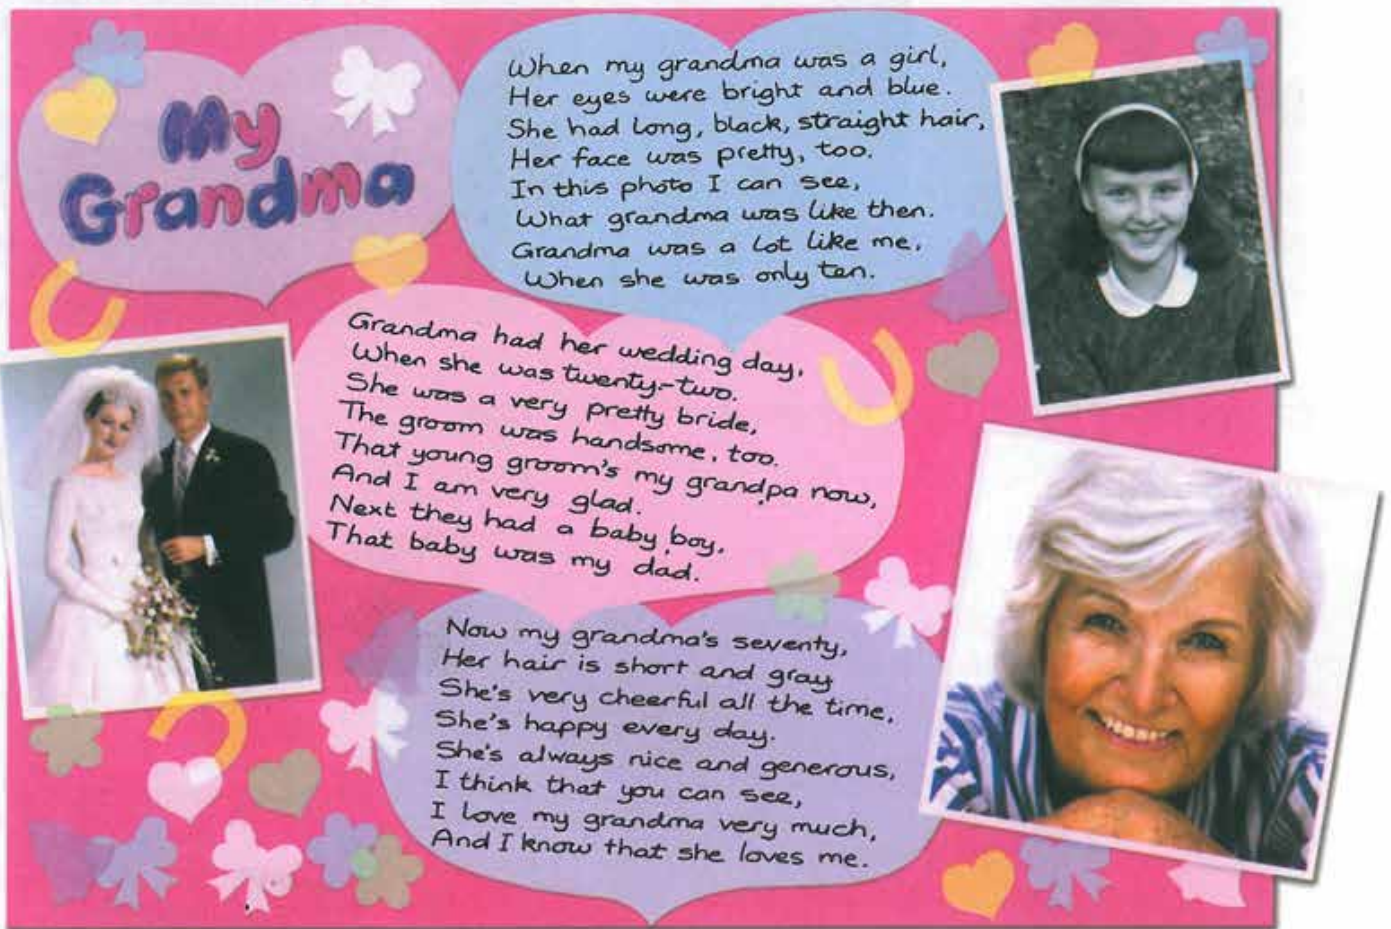 My
Grandma
When my grandma was a girl,
Her eyes were bright and blue.
She had long, black, straight hair,
Her face was pretty, too.
In this photo I can see,
What grandma was like then.
Grandma was a lot like me,
When she was only ten.
Grandma had her wedding day,
When she was twenty-two.
She was a very pretty bride,
The groom was handsome, too.
That young groom's my grandpa now,
And I am very glad.
Next they had a baby boy,
That baby was my dad.
Now my grandma's seventy,
Her hair is short and gray
She's very cheerful all the time,
She's happy every day.
She's always nice and generous,
I think that you can see,
I love my grandma very much,
And I know that she loves me.